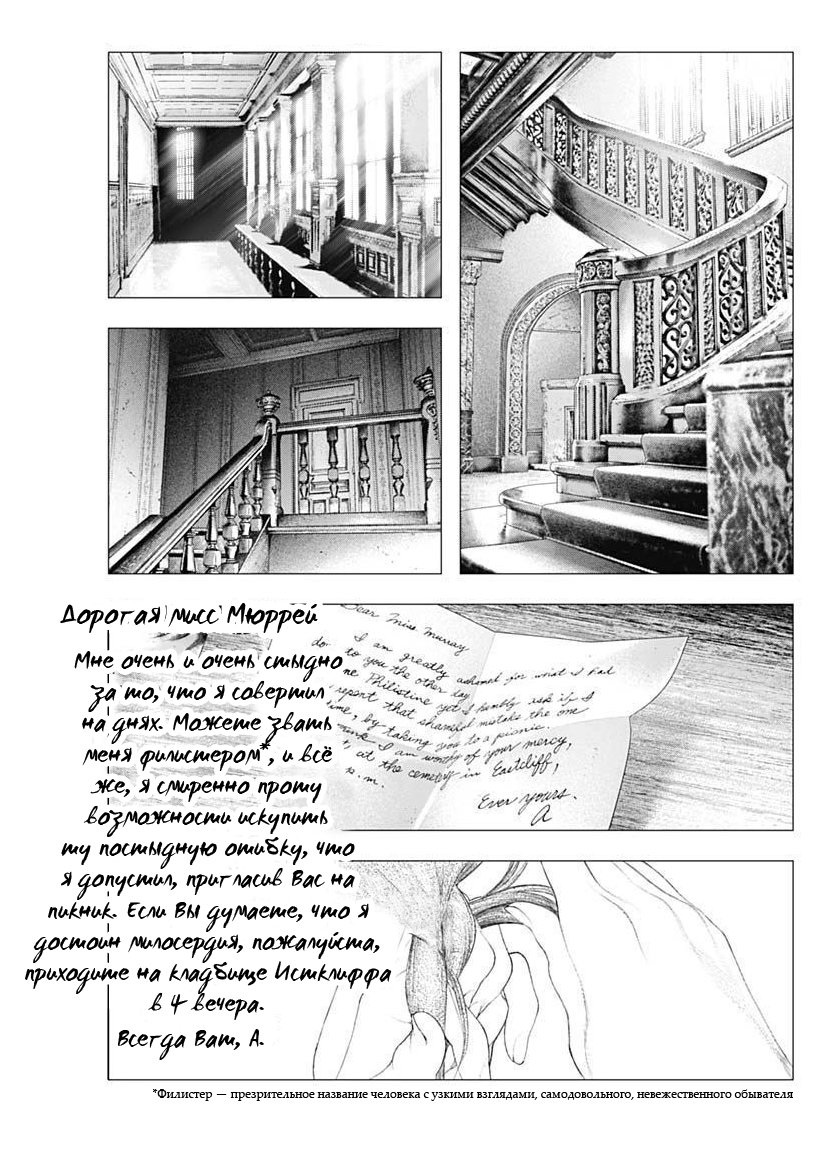 Дорогая мисс Мюррей
Мне очень и очень стыдно
за то, что я совершил
на днях. Можете звать
меня филистером*, и всё
же, я смиренно прошу
возможности искупить
ту постыдную ошибку, что
я допустил, пригласив Вас на
пикник. Если Вы думаете, что я
достоин милосердия, пожалуйста,
приходите на кладбище Истклиффа
в 4 вечера.
Всегда Ваш, А.
Dear Miss Murray
I am greatly ashamed for what I had
to you the other day
me Philistine yet I humbly ask if I
repent that shameful mistake the one
time, by taking you to a picnic.
I am worthy of your mercy,
at the cemetery in Eastcliff,
p.m.
Ever yours.
A
*Филистер — презрительное название человека с узкими взглядами, самодовольного, невежественного обывателя